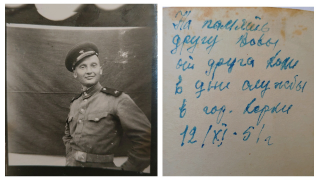 На память
другу Вовы
от друга Коли
в дни службы
в гор. Керки
12/XI-51 г